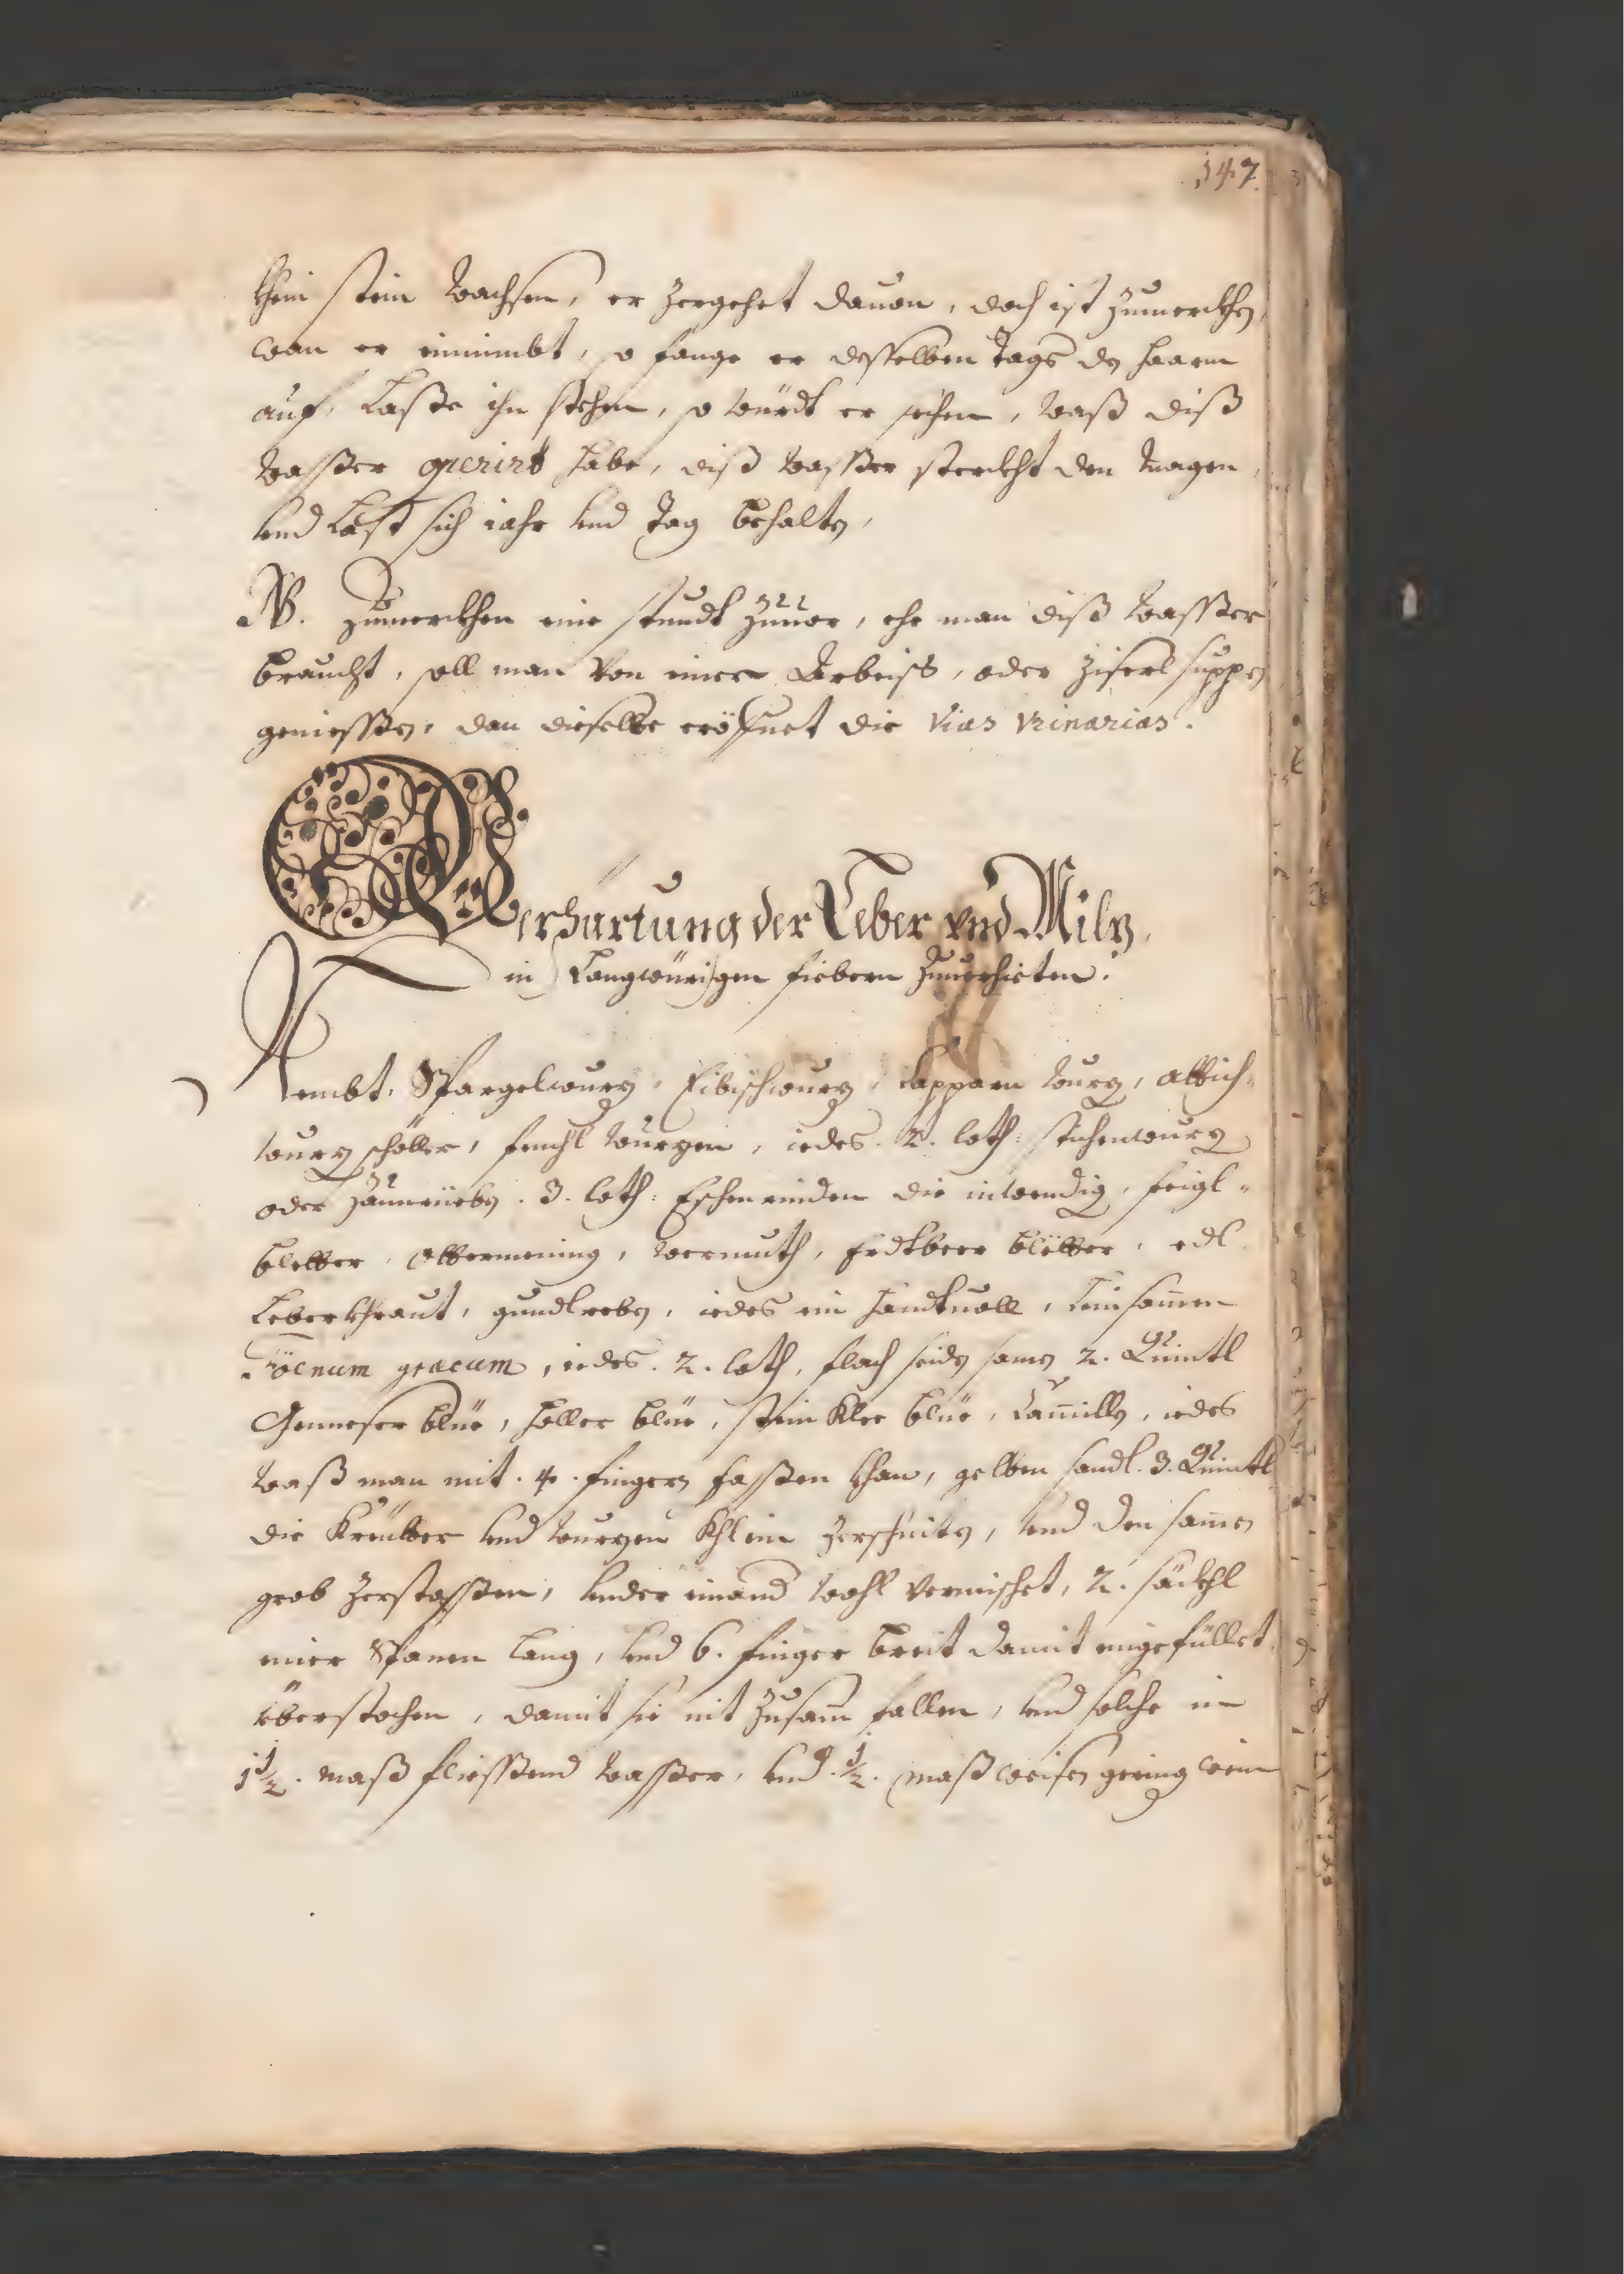 147.
khein stein wachsen, er zergehet dauon, doch ist zumerckhen,
wan er einnimbt, so fange er desselben tags den haarm
auf, lasse ihn stehen, so würdt er sehen, waß diß
wasser operirt habe, diß wasser sterckht den magen,
vnd last sich iahr vnd tag behalten,
NB. zumerckhen eine stundt zuuor, ehe man diß wasser
braucht, soll man von einer Arbeiss, oder ziserl suppen
geniessen, dan dieselbe eröfnet die vias vrinarias.
Verhärtung der Leber vnd Milz,
in langwürigen fiebern zuuerhieten.
Nembt, Spargelwurz, Eibischwurz, kapparn wurz, attich-
wurz schöller, fenchl wurzen, iedes. 2. loth: stichwurz
oder zaunrüeben. 3. loth: Eschenrinden die inwendig, feigl-
bletter, Ottermening, wermuth, Erdtbeer bletter, edl
leberkhraut, gundlreben, iedes ein handtuoll, leinsamen
Föenum graecum, iedes. 2. loth, flachseiden samen 2. Quintl
Genneser blüe, holler blüe, steinklee blüe, Camillen, iedes
waß man mit. 4. fingern fassen khan, gelben sandl. 3. Quintl
die Kreütter vnd wurzen khlein zerschniten, vnd den samen
grob zerstossen, vnder einand wohl vermischet, 2. säckhl
einer Spanen lang, vnd 6. finger breit damit eingefüllet,
überstochen, damit sie nit zusam fallen, vnd solche in
1½. maß fliessend wasser, vnd. ½. maß weisen gering wein